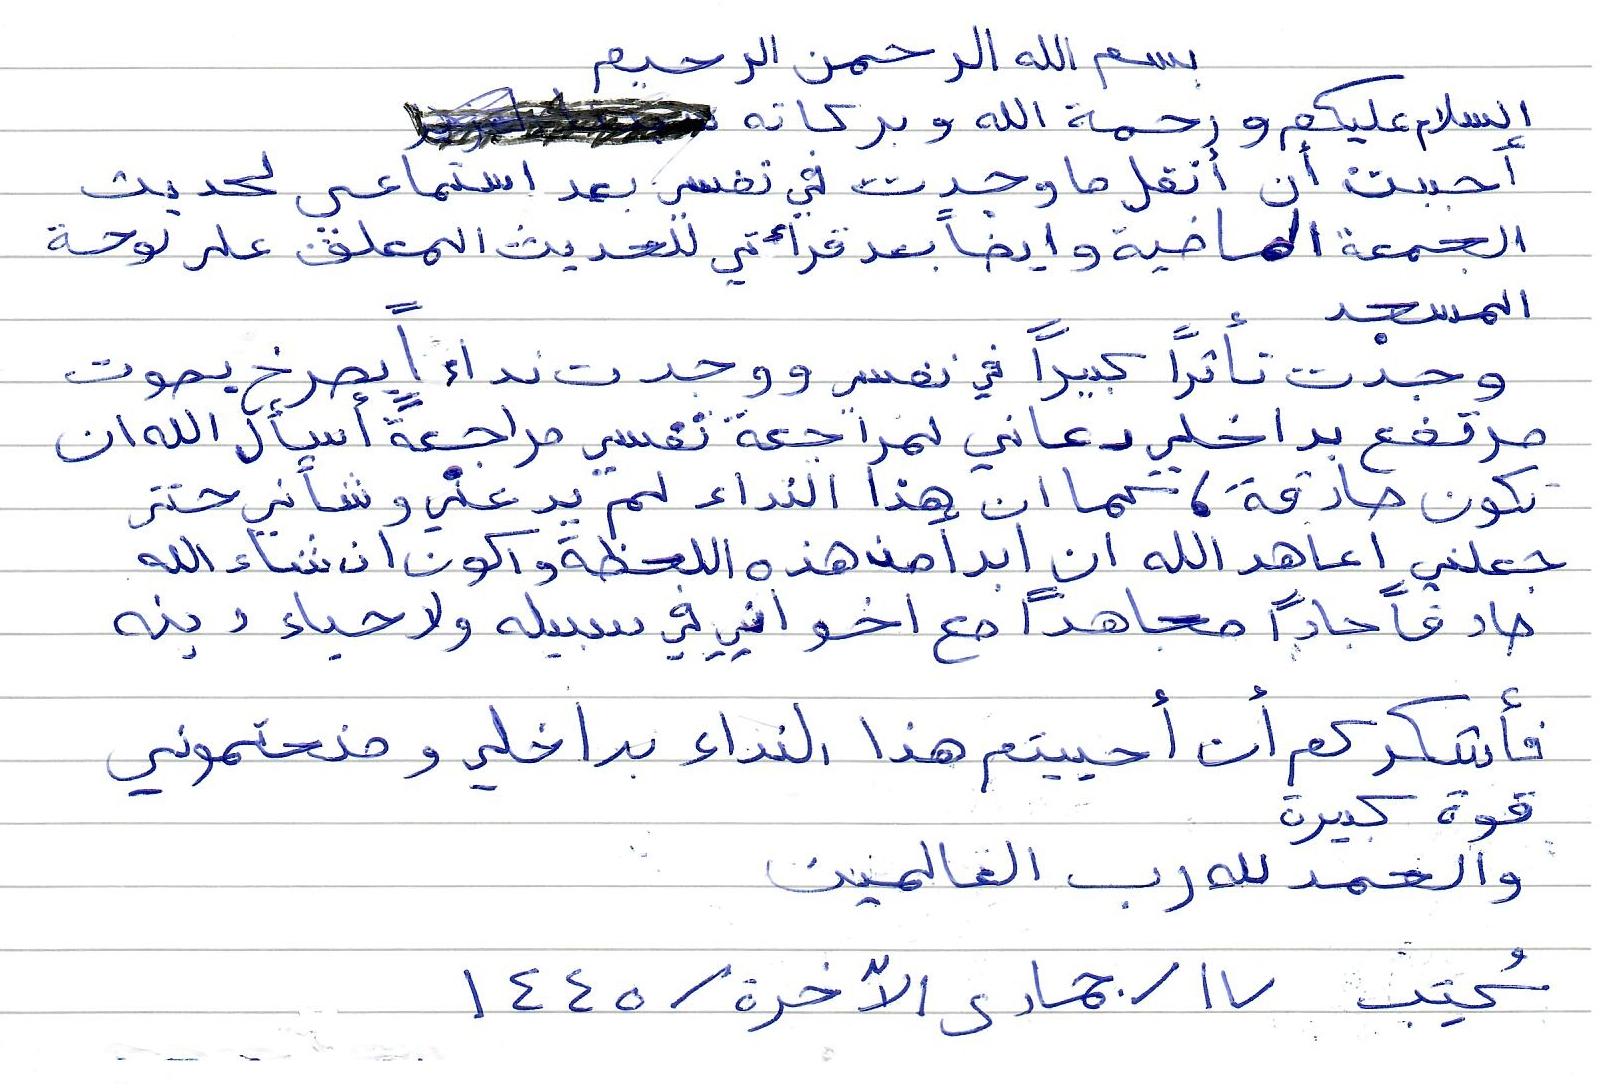 بسم الله الرحمن الرحيم
السلام عليكم ورحمة الله وبركاته
أحببت أن أنقل ما وجدت في نفسي بعد استماعي لحديث
الجمعة الماضية وايضاً بعد قرأءتي للحديث المعلق على لوحة
المسجد
وجدْت تأثراً كبيراً في نفسي ووجدت نداءاً يصرخ بصوت
مرتفع بداخلي دعاني لمراجعة نفسي مراجعةً أسأل الله ان
تكون صادقة، كما ان هذا النداء لم يدعني وشأني حتى
جعلني اعاهد الله ان ابدأ من هذه اللحظة واكون ان شاء الله
صادقاً جاداً مجاهداً مع اخواني في سبيله ولاحياء دينه
فأشكركم أن أحييتم هذا النداء بداخلي ومنحتموني
قوة كبيرة
والحمد لله رب العالمين
كُتِب ١٧/جمادى الآخرة/١٤٤٥